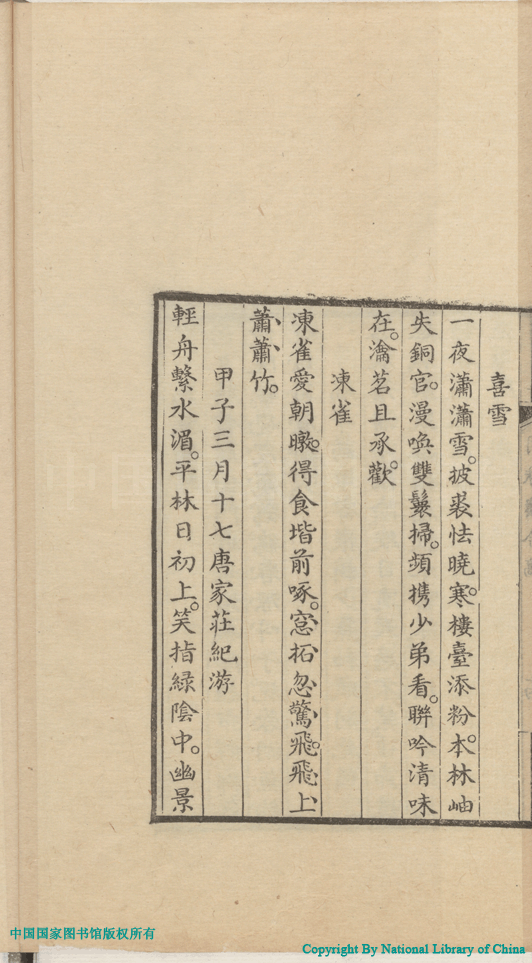 喜雪
一夜瀟瀟雪。披裘怯曉寒。樓臺添粉本。林岫
失銅官。漫喚雙鬟掃。頻攜少弟看。聯吟清味
在。瀹茗且承歡。
凍雀
凍雀愛朝暾。得食堦前啄。窓拓忽驚飛。飛上
蕭蕭竹。
甲子三月十七唐家莊紀游
輕舟繫水湄。平林日初上。笑指綠陰中。幽景
中国国家图书馆版权所有
Copyright By National Library of China